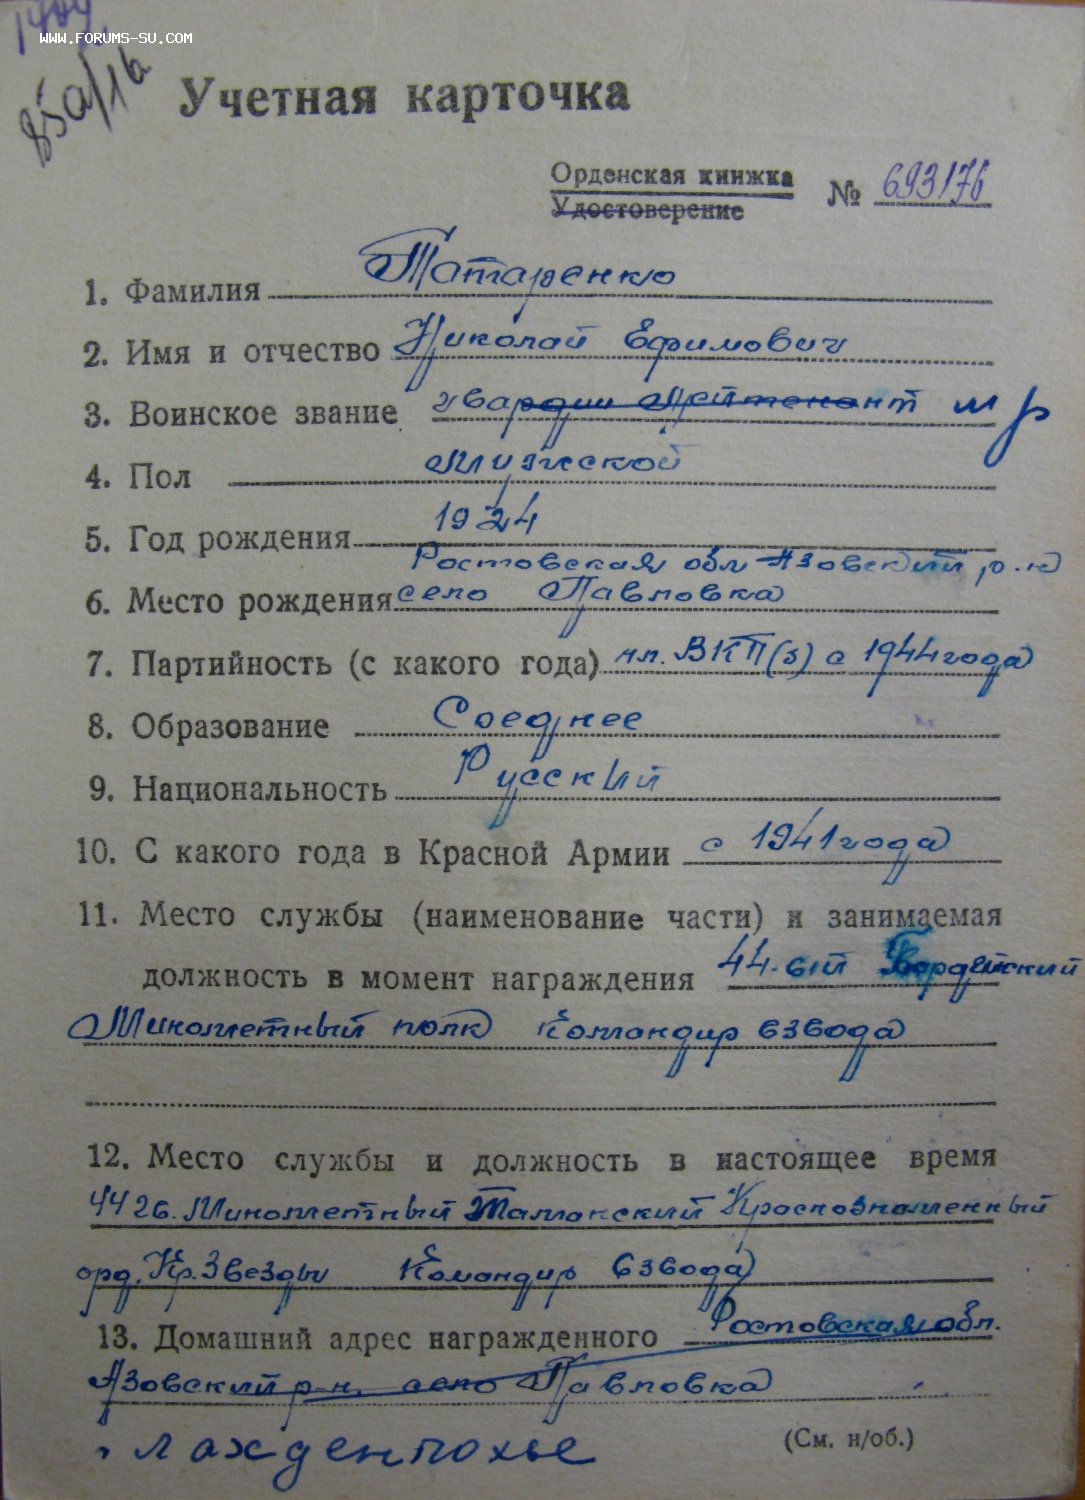 WWW.FORUMS-SU.COM
85а/16
Учетная карточка
Орденская книжка
Удостоверение
№ 693176
1. Фамилия Татаренко
2. Имя и отчество Николай Ефимович
3. Воинское звание гвардии Лейтенант м р
4. Пол Мужской
5. Год рождения 1924
Ростовская обл Азовский р-н
6. Место рождения село Павловка
7. Партийность (с какого года) чл. ВКП(б) с 1944 года
8. Образование Среднее
9. Национальность Русский
10. С какого года в Красной Армии с 1941 года
11. Место службы (наименование части) и занимаемая
должность в момент награждения 44-ый Гвардейский
Минометный полк Командир взвода
12. Место службы и должность в настоящее время
44 гв. Минометный Таманский Краснознаменный
орд. Кр. Звезды Командир взвода
13. Домашний адрес награжденного Ростовская обл.
Азовский р-н. село Павловка
г лахденпохье
(См. н/об.)